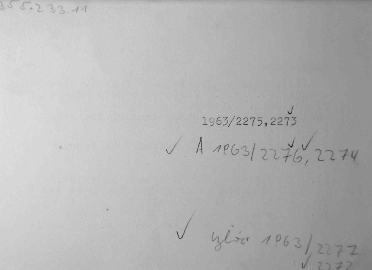 355.233.11
1963/2275,2273
✓ A 1963/2276, 2274
✓ 1963/2277
✓ 2272